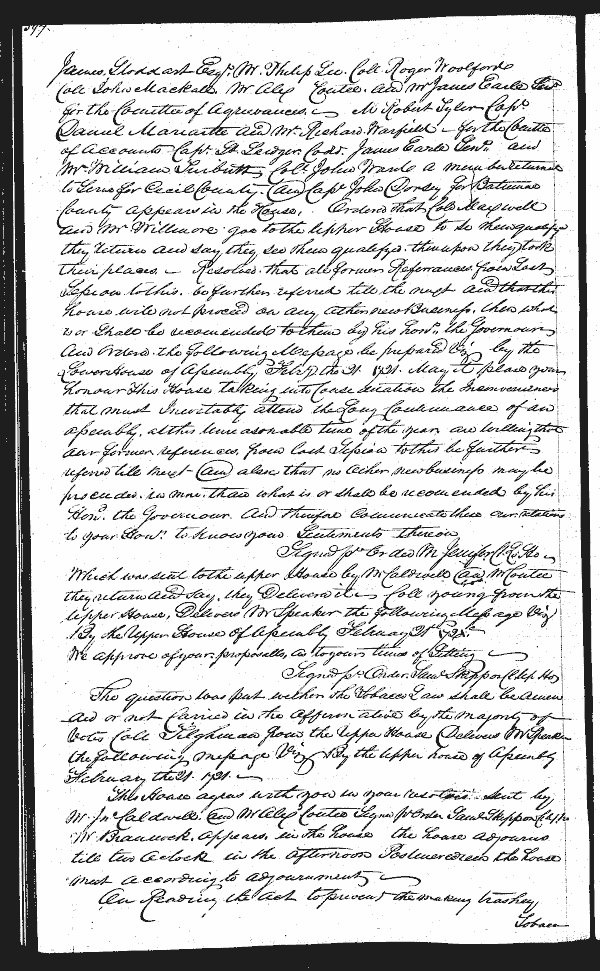 James Stoddart Esqr. Mr. Philip Lee. Coll Roger Woolford
Coll John Mackall Mr Alex Contee. and Mr James Earle Junr
for the Comittee of Agrievances. Mr Robert Tyler Capt.
Daniel Mariartte and Mr. Richard Warfield for the Comittee
of Accounts Capt. James Earle Senr. and
Mr William Coll. John Ward a member returned
to Serve for Cecil County. (and) Capt John Dorsey for Baltimore
County appears in the House. Ordered that Coll Maxwell
and Mr Willmore goe to the Upper House to see them qualifyed
they return and say they see them qualifyd. thereupon they took
their places. Resolved that all former Referrances from Last
Session to this. be further referred till the next and that this
house will not proceed on any other new Business. then what
is or shall be recomended to them by his honr. the Governour
And Ordered the following Message be prepared Viz by the
Lower House of Assembly Febry the 21. 1721. May it please your
honour This House takeing into Consideration the Inconveniences
that must Inevitably attend the Long Continuance of an
Assembly, at this unseasonable time of the year are willing that
our former references, from last Session to this be further
referred till next (and) alsoe that no other new business may be
proceeded in more than what is or shall be recomended by his
Honr. the Governour. And therefore Communicate these our
to your Honrs. to know your Sentiments thereon
Signd pr Order M Jenifer Cl. Lo. Ho
Which was sent to the upper House by Mr Caldwell (and) Mr Contee
they return and say. they Delivered it Coll young from the
Upper House, Delivers Mr Speaker the following Message Viz
By the Upper House of Assembly February 21st 1721.
We approve of your proposalls, as to your times of Sitting
Signd pr Order. Saml. Skippon Cl Up. Ho
The question was put wether the Tobacco Law shall be amen
ded or not Carried in the Affirmative by the Majority of
Votes Coll Tilghman from the Upper House Delivers Mr Speaker
the following message Viz By the Upper house of Assembly
February the 21. 1721.
This House agrees with you in your resolves. Sent by
Mr. Jno. Caldwell. and Mr Alex Contee Signd pr Order. Saml Skippon Cl Up. Ho
Mr Brannock. Appears, in the house the house adjourns
till two a Clock in the afternoon Post meridiem the house
meet according to adjournment
On Reading the Act to prevent the making trashey
Tobacco